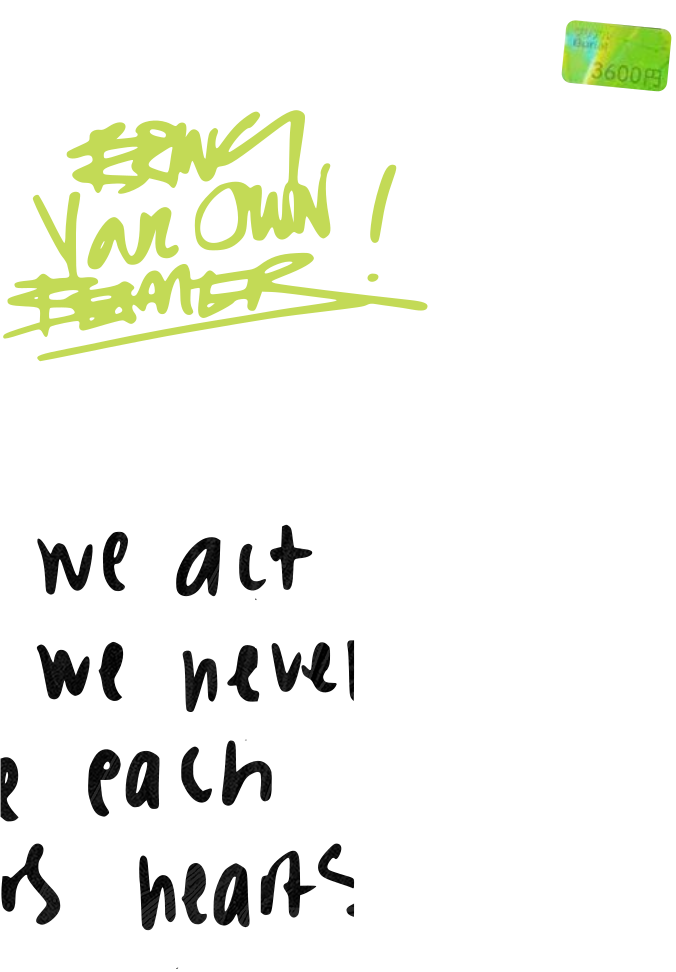 3600円
BRING
Your OWN !
BEAMER
we act
we never
e each
rs hearts